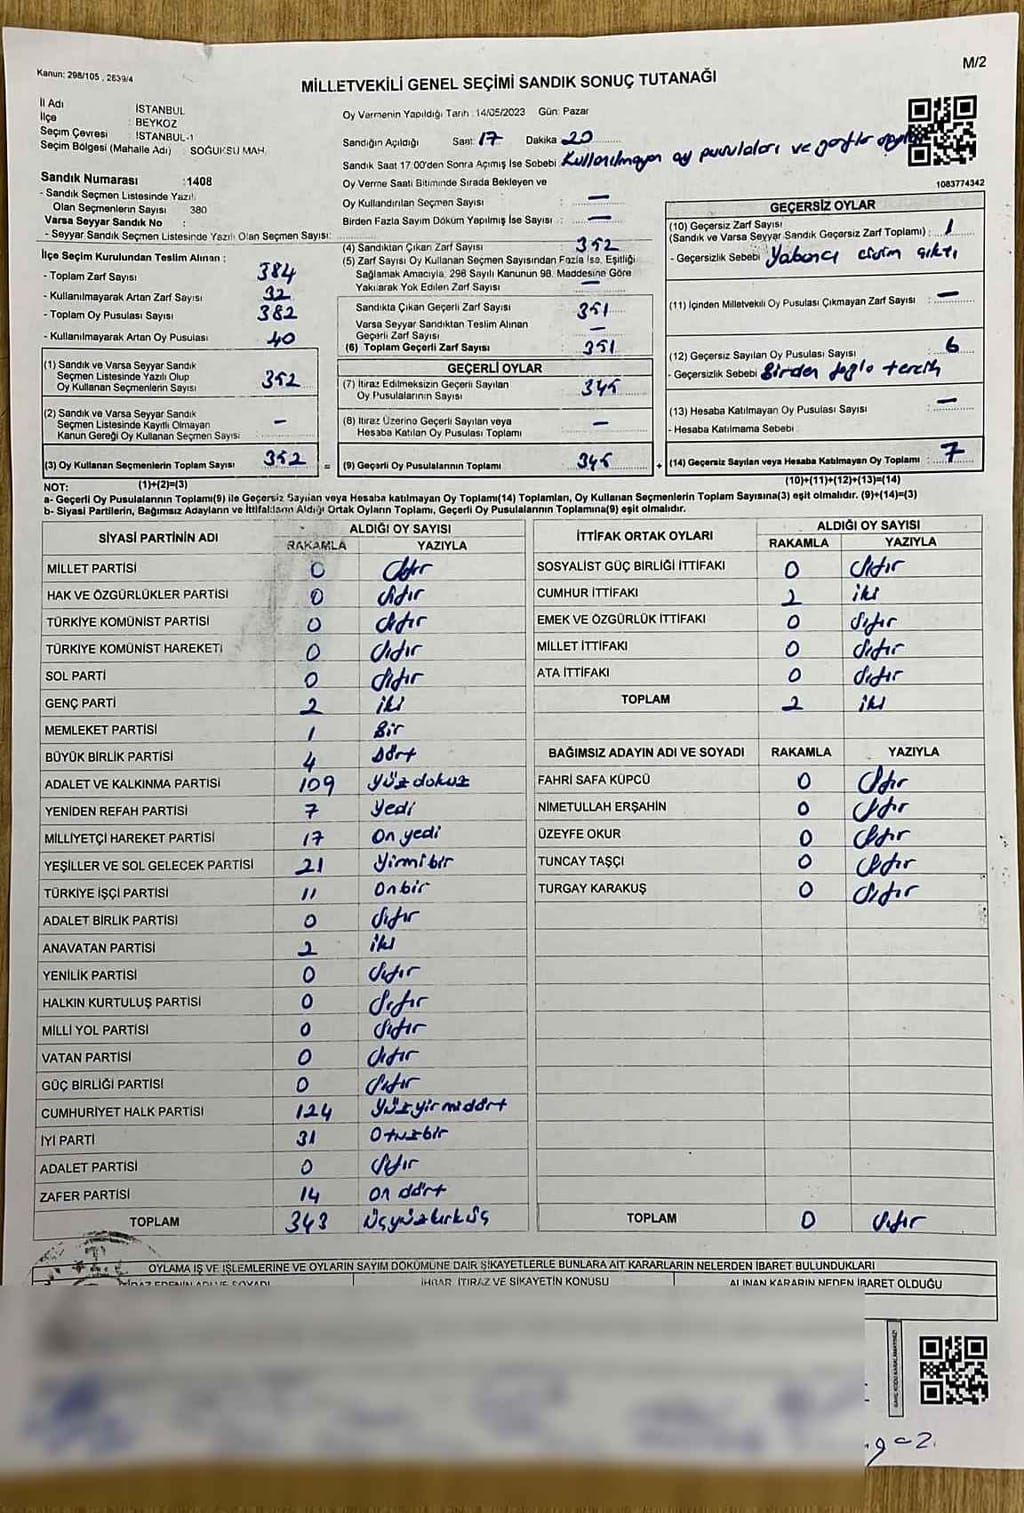 Kanun: 298/105 , 2839/4
M/2
MİLLETVEKİLİ GENEL SEÇİMİ SANDIK SONUÇ TUTANAĞI
İl Adı : İSTANBUL
İlçe : BEYKOZ
Seçim Çevresi : İSTANBUL-1
Seçim Bölgesi (Mahalle Adı) : SOĞUKSU MAH.
Oy Vermenin Yapıldığı Tarih : 14/05/2023 Gün: Pazar
Sandığın Açıldığı Saat: 17 Dakika 20
Sandık Saat 17.00'den Sonra Açılmış İse Sebebi : Kullanılmayan oy pusulaları ve zarflar
Oy Verme Saati Bitiminde Sırada Bekleyen ve
Oy Kullandırılan Seçmen Sayısı : —
Birden Fazla Sayım Döküm Yapılmış İse Sayısı : —
1083774342
Sandık Numarası : 1408
- Sandık Seçmen Listesinde Yazılı
Olan Seçmenlerin Sayısı 380
Varsa Seyyar Sandık No :
- Seyyar Sandık Seçmen Listesinde Yazılı Olan Seçmen Sayısı:
İlçe Seçim Kurulundan Teslim Alınan :
- Toplam Zarf Sayısı 384
- Kullanılmayarak Artan Zarf Sayısı 32
- Toplam Oy Pusulası Sayısı 382
- Kullanılmayarak Artan Oy Pusulası 40
(1) Sandık ve Varsa Seyyar Sandık
Seçmen Listesinde Yazılı Olup
Oy Kullanan Seçmenlerin Sayısı 352
(2) Sandık ve Varsa Seyyar Sandık
Seçmen Listesinde Kayıtlı Olmayan
Kanun Gereği Oy Kullanan Seçmen Sayısı : —
(3) Oy Kullanan Seçmenlerin Toplam Sayısı 352 =
(4) Sandıktan Çıkan Zarf Sayısı : 352
(5) Zarf Sayısı Oy Kullanan Seçmen Sayısından Fazla İse, Eşitliği
Sağlamak Amacıyla, 298 Sayılı Kanunun 98. Maddesine Göre
Yakılarak Yok Edilen Zarf Sayısı : —
Sandıkta Çıkan Geçerli Zarf Sayısı : 351
Varsa Seyyar Sandıktan Teslim Alınan
Geçerli Zarf Sayısı : —
(6) Toplam Geçerli Zarf Sayısı : 351
GEÇERLİ OYLAR
(7) İtiraz Edilmeksizin Geçerli Sayılan
Oy Pusulalarının Sayısı : 345
(8) İtiraz Üzerine Geçerli Sayılan veya
Hesaba Katılan Oy Pusulası Toplamı : —
(9) Geçerli Oy Pusulalarının Toplamı : 345 +
GEÇERSİZ OYLAR
(10) Geçersiz Zarf Sayısı
(Sandık ve Varsa Seyyar Sandık Geçersiz Zarf Toplamı) : 1
- Geçersizlik Sebebi : Yabancı cisim çıktı
(11) İçinden Milletvekili Oy Pusulası Çıkmayan Zarf Sayısı : —
(12) Geçersiz Sayılan Oy Pusulası Sayısı : 6
- Geçersizlik Sebebi : Birden fazla tercih
(13) Hesaba Katılmayan Oy Pusulası Sayısı : —
- Hesaba Katılmama Sebebi :
(14) Geçersiz Sayılan veya Hesaba Katılmayan Oy Toplamı : 7
NOT: (1)+(2)=(3) (10)+(11)+(12)+(13)=(14)
a- Geçerli Oy Pusulalarının Toplamı(9) ile Geçersiz Sayılan veya Hesaba katılmayan Oy Toplamı(14) Toplamları, Oy Kullanan Seçmenlerin Toplam Sayısına(3) eşit olmalıdır. (9)+(14)=(3)
b- Siyasi Partilerin, Bağımsız Adayların ve İttifakların Aldığı Ortak Oyların Toplamı, Geçerli Oy Pusulalarının Toplamına(9) eşit olmalıdır.
SİYASİ PARTİNİN ADI ALDIĞI OY SAYISI
RAKAMLA YAZIYLA
MİLLET PARTİSİ 0 sıfır
HAK VE ÖZGÜRLÜKLER PARTİSİ 0 sıfır
TÜRKİYE KOMÜNİST PARTİSİ 0 sıfır
TÜRKİYE KOMÜNİST HAREKETİ 0 sıfır
SOL PARTİ 0 sıfır
GENÇ PARTİ 2 iki
MEMLEKET PARTİSİ 1 Bir
BÜYÜK BİRLİK PARTİSİ 4 Dört
ADALET VE KALKINMA PARTİSİ 109 yüz dokuz
YENİDEN REFAH PARTİSİ 7 Yedi
MİLLİYETÇİ HAREKET PARTİSİ 17 On yedi
YEŞİLLER VE SOL GELECEK PARTİSİ 21 Yirmibir
TÜRKİYE İŞÇİ PARTİSİ 11 Onbir
ADALET BİRLİK PARTİSİ 0 sıfır
ANAVATAN PARTİSİ 2 iki
YENİLİK PARTİSİ 0 sıfır
HALKIN KURTULUŞ PARTİSİ 0 sıfır
MİLLİ YOL PARTİSİ 0 sıfır
VATAN PARTİSİ 0 sıfır
GÜÇ BİRLİĞİ PARTİSİ 0 sıfır
CUMHURİYET HALK PARTİSİ 124 yüzyirmidört
İYİ PARTİ 31 Otuzbir
ADALET PARTİSİ 0 sıfır
ZAFER PARTİSİ 14 on dört
TOPLAM 343 üçyüzkırküç
İTTİFAK ORTAK OYLARI ALDIĞI OY SAYISI
RAKAMLA YAZIYLA
SOSYALİST GÜÇ BİRLİĞİ İTTİFAKI 0 sıfır
CUMHUR İTTİFAKI 2 iki
EMEK VE ÖZGÜRLÜK İTTİFAKI 0 sıfır
MİLLET İTTİFAKI 0 sıfır
ATA İTTİFAKI 0 sıfır
TOPLAM 2 iki
BAĞIMSIZ ADAYIN ADI VE SOYADI RAKAMLA YAZIYLA
FAHRİ SAFA KÜPCÜ 0 sıfır
NİMETULLAH ERŞAHİN 0 sıfır
ÜZEYFE OKUR 0 sıfır
TUNCAY TAŞÇI 0 sıfır
TURGAY KARAKUŞ 0 sıfır
TOPLAM 0 sıfır
OYLAMA İŞ VE İŞLEMLERİNE VE OYLARIN SAYIM DÖKÜMÜNE DAİR ŞİKAYETLERLE BUNLARA AİT KARARLARIN NELERDEN İBARET BULUNDUKLARI
İHBAR, İTİRAZ VE ŞİKAYETİN KONUSU ALINAN KARARIN NEDEN İBARET OLDUĞU